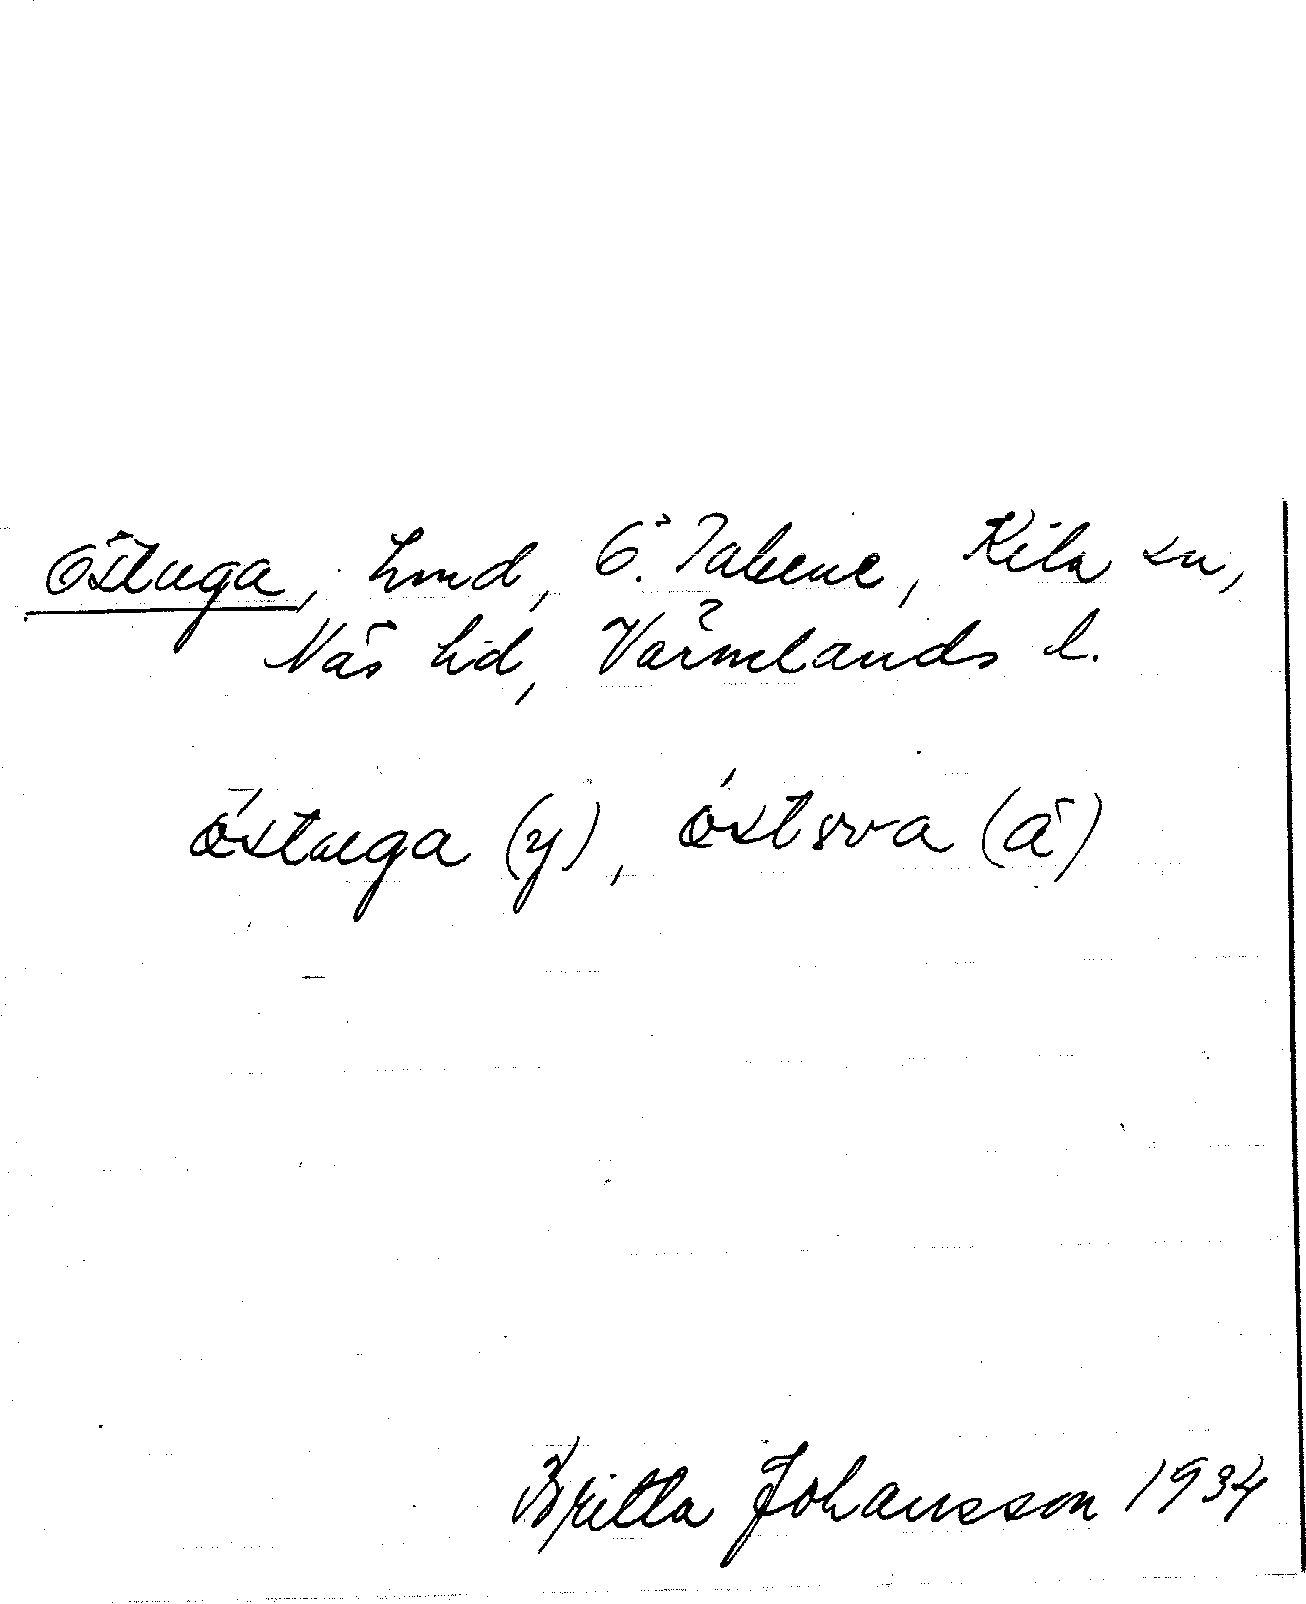 Östuga, hmd, Ö. Takene, Kila sn,
Näs hd, Värmlands l.
östuga (y), östova (ä)
Britta Johansson 1934